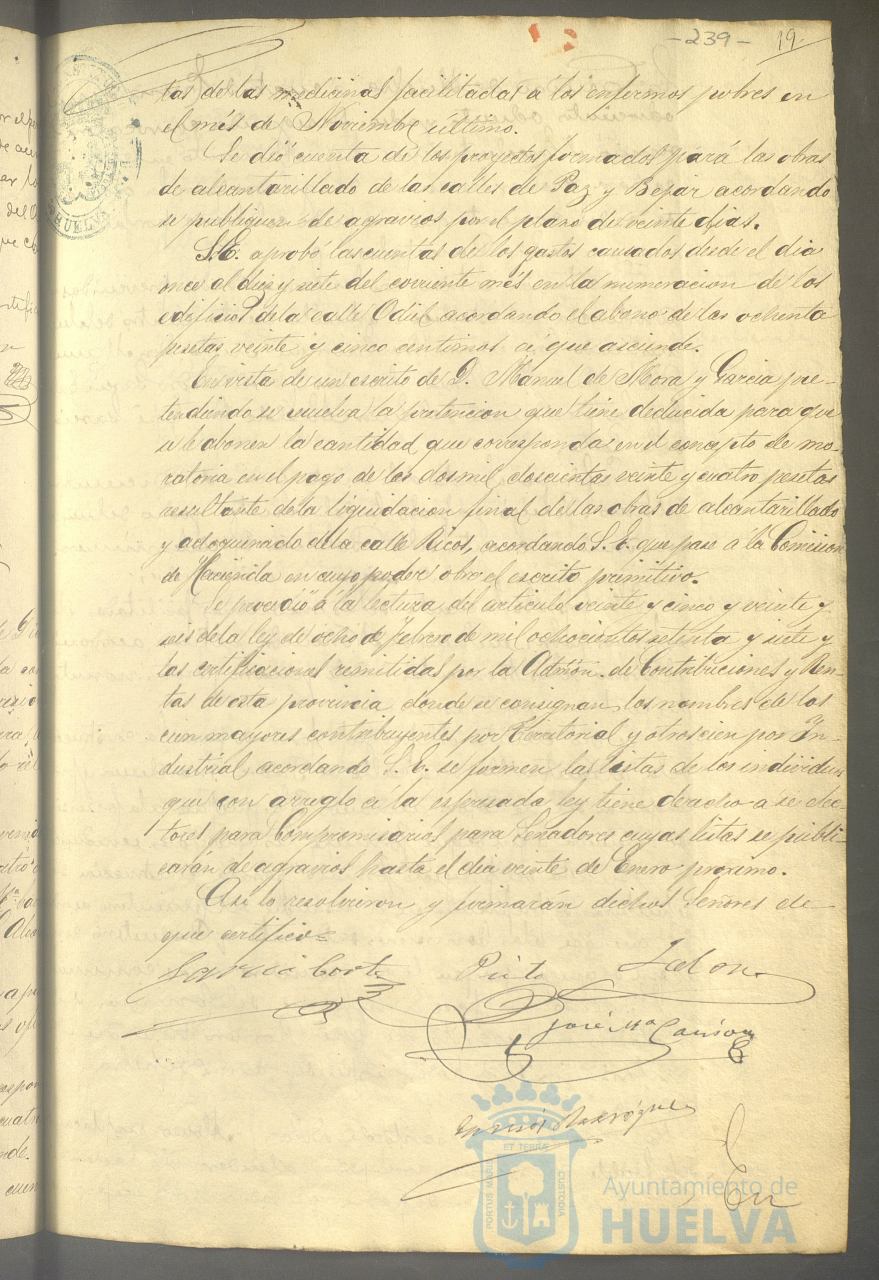 -239-
19
tos de las medicinas facilitadas á los enfermos pobres en
el més de Noviembre último.
Se dió cuenta de los proyectos formados pará las obras
de alcantarillado de las calles de Paz y Bejar acordando
se publiquen de agravios por el plazo de veinte dias.
S.E. aprobó las cuentas de los gastos causados desde el dia
once al diez y siete del corriente més en la numeracion de los
edificios de la calle Odiel acordando el abono de las ochenta
pesetas veinte y cinco centimos á que asciende.
En vista de un escrito de D. Manuel de Mora y Garcia pre-
tendiendo se vuelva la pretencion que tiene deducida para que
se le abonen la cantidad que corresponda en el concepto de mo-
ratoria en el pago de las dos mil doscientas veinte y cuatro pesetas
resultante de la liquidacion final de las obras de alcantarillado
y adoquinado de la calle Ricos, acordando S.E. que pase a la Comision
de Hacienda en cuyo poder obra el escrito primitivo.
Se procedió á la lectura del articulo veinte y cinco y veinte y
seis de la ley de ocho de febrero de mil ochocientos setenta y siete y
las certificaciones remitidas por la Admon. de Contribuciones y Ren-
tas de esta provincia donde se consignan los nombres de los
cien mayores contribuyentes por Territorial y otros cien por In-
dustrial acordando S.E. se formen las listas de los individuos
que con arreglo á la espresada ley tiene derecho a se elec-
tores para Compromisarios para Senadores cuyas listas se publi-
carán de agravios hasta el dia veinte de Enero proximo.
Asi lo resolvieron y firmarán dichos Señores de
que certifico=
Garcia Cortes
Pinto
Jalon
José Mª
PORTUS MARIS ET TERRÆ CUSTODIA
Ayuntamiento de
HUELVA